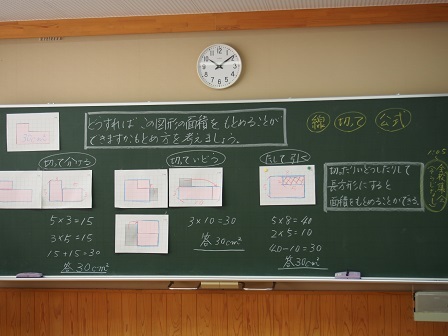 どうすれば この図形の面積を もとめることが
できますか。もとめ方を 考えましょう。
線 切って 公式
切って分ける
5×3=15
3×5=15
15+15=30
答 30cm²
切っていどう
3×10=30
答 30cm²
たして引く
5×8=40
2×5=10
40-10=30
答 30cm²
切ったりいどうしたりして
長方形にすると
面積をもとめることができる。